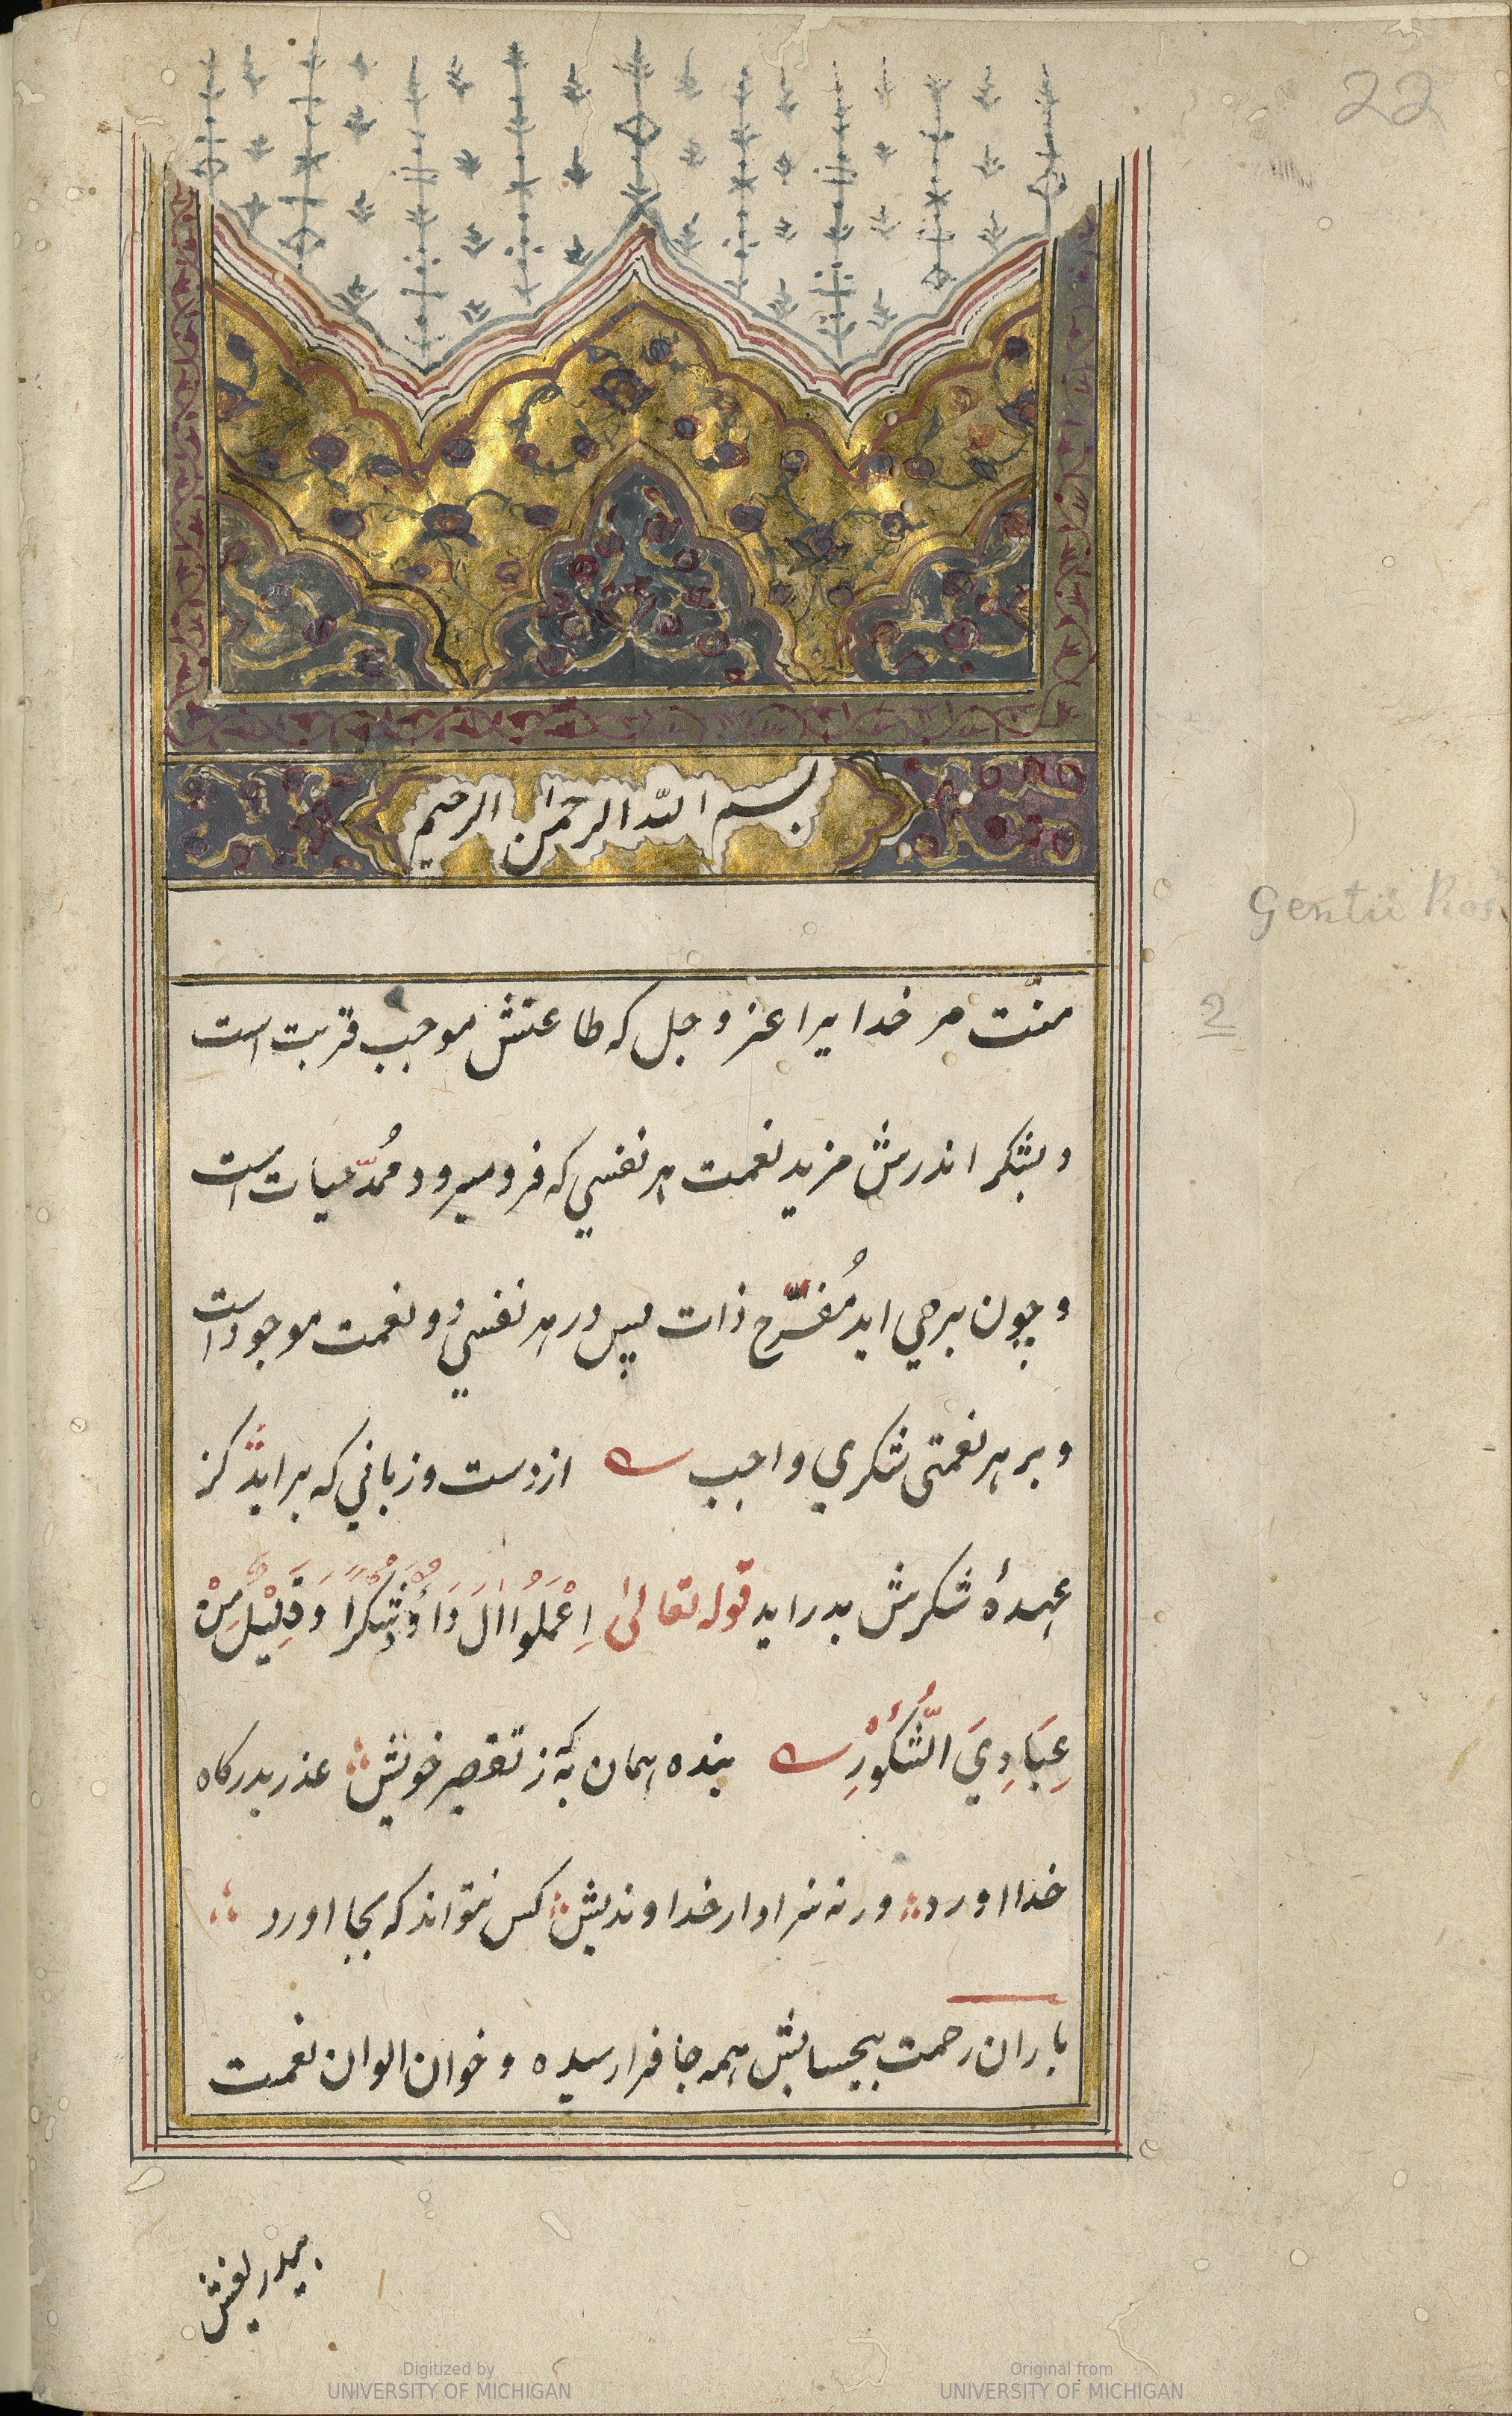 22
بسم الله الرحمن الرحيم
Gentii Ros
2
منّت مر خدايرا عز و جل كه طاعتش موجب قربت است
و بشكر اندرش مزيد نعمت هر نفسي كه فرو ميرود مُمدّ حيات است
و چون برمي ايد مُفرّح ذات پس در هر نفسي دو نعمت موجود است
و بر هر نعمتى شكري واجب از دست و زباني كه برايد كز
عهدهٔ شكرش بدرايد قوله تعالىٰ اِعْمَلُوا اٰلَ دَاوُٗدَ شُكْرًا وَ قَلِيْلٌ مِنْ
عِبَادِيَ الشَّكُوْرُ بنده همان به كه ز تقصير خويش عذر بدركاه
خدا اورد ورنه سزاوار خداونديش كس نتواند كه بجا اورد
باران رحمت بيحسابش همه جا فرا رسيده و خوان الوان نعمت
بيدريغش
Digitized by
UNIVERSITY OF MICHIGAN
Original from
UNIVERSITY OF MICHIGAN